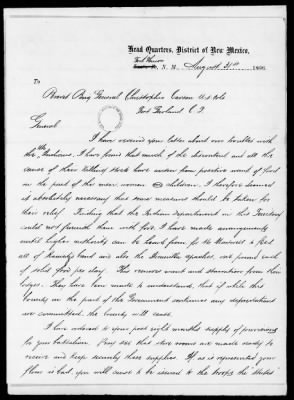 Head Quarters, District of New Mexico,
Fort Union
N. M., August 31st 1866.
To
Brevet Brig General Christopher Carson U.S. Vols
Fort Garland C. T.
General
I have received your letter about our troubles with
the Ute Indians. I have found that much of the discontent and all the
cause of their killing stock have arisen from positive want of food
on the part of the men women & children. I therefore deemed
it absolutely necessary that some measures should be taken for
their relief. Finding that the Indian department in this Territory
could not furnish them with food, I have made arrangements
until higher authority can be heard from for the Maxwell to feed
all of Kaniache's band and also the Jicarilla Apaches, one pound each
of solid food per day. This removes want and starvation from their
lodges. They have been made to understand, that if while this
bounty on the part of the Government continues any depredations
are committed, the bounty will cease.
I have ordered to your post eight months supply of provisions
for your battalion. Pray see that store rooms are made ready to
receive and keep securely these supplies. If as is represented your
flour is bad, you will cause to be issued to the troops the